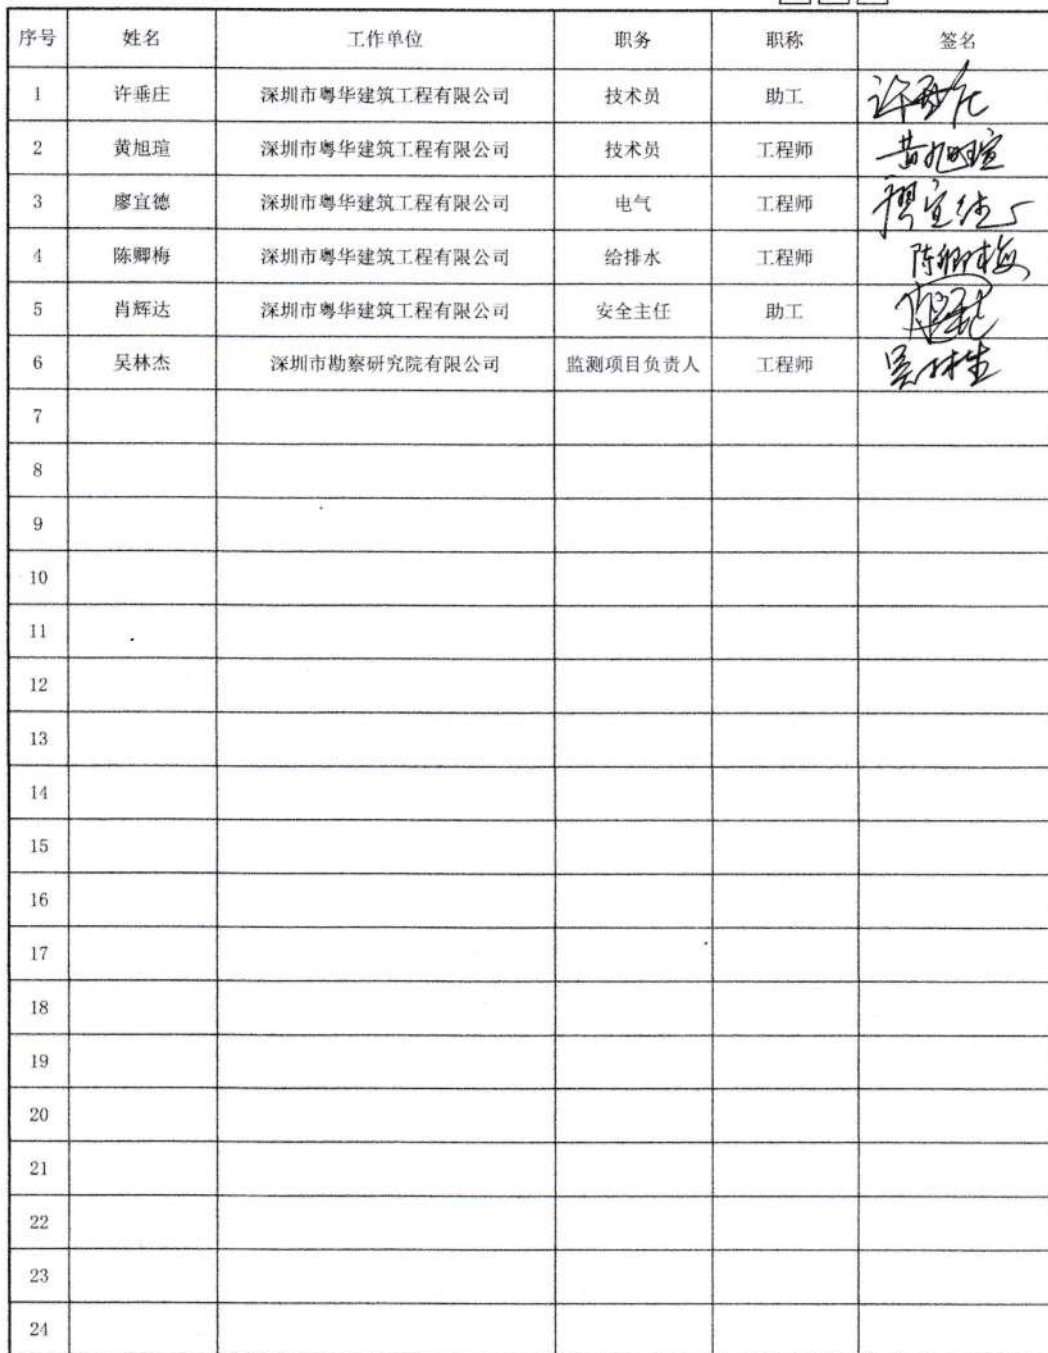 序号 姓名 工作单位 职务 职称 签名
1 许垂庄 深圳市粤华建筑工程有限公司 技术员 助工 许垂庄
2 黄旭瑄 深圳市粤华建筑工程有限公司 技术员 工程师 黄旭瑄
3 廖宜德 深圳市粤华建筑工程有限公司 电气 工程师 廖宜德
4 陈卿梅 深圳市粤华建筑工程有限公司 给排水 工程师 陈卿梅
5 肖辉达 深圳市粤华建筑工程有限公司 安全主任 助工
6 吴林杰 深圳市勘察研究院有限公司 监测项目负责人 工程师 吴林杰
7
8
9
10
11
12
13
14
15
16
17
18
19
20
21
22
23
24